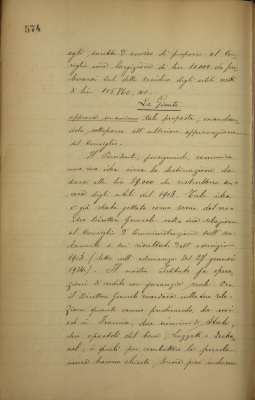 574
egli sarebbe d'avviso di proporre al Con
siglio una largizione di lire 10.000 da pre
levarsi sul detto residuo degli utili netti
di lire
La Giunta
approva unanime tale proposta, mandan
dola sottoporre all'ulteriore approvazione
del Consiglio.
Il Presidente, proseguendo, comunica
una sua idea circa la destinazione da
darsi alle lire 59.000 che risulterebbero an
cora degli utili del 1913. Tale idea
è già stata gettata come seme dal no
stro Direttore Generale nella sua relazione
al Consiglio d'Amministrazione sull'an
damento e sui risultati dell'esercizio
1913 (letta nell'adunanza del 27 gennaio
1914). Il nostro Istituto fa opera
zioni di credito con garanzia reale. Ora
il Direttore Generale ricordava nella sua rela
zione quanto vanno predicando, da noi
ed in Francia, due uomini di Stato,
due apostoli del bene, Luzzatti e Decha
nel, i quali per combattere la piccola